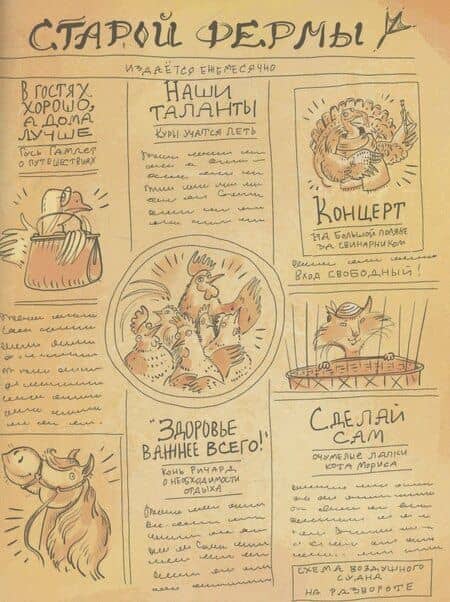 СТАРОЙ ФЕРМЫ
ИЗДАЁТСЯ ЕЖЕМЕСЯЧНО
В ГОСТЯХ
ХОРОШО,
А ДОМА
ЛУЧШЕ
ГУСЬ ГАМЛЕТ
О ПУТЕШЕСТВИЯХ
НАШИ
ТАЛАНТЫ
КУРЫ УЧАТСЯ ПЕТЬ
КОНЦЕРТ
НА БОЛЬШОЙ ПОЛЯНЕ
ЗА СВИНАРНИКОМ
ВХОД СВОБОДНЫЙ!
"ЗДОРОВЬЕ
ВАЖНЕЕ ВСЕГО!"
КОНЬ РИЧАРД
О НЕОБХОДИМОСТИ
ОТДЫХА
СДЕЛАЙ
САМ
ОЧУМЕЛЫЕ ЛАПКИ
КОТА МОРИСА
СХЕМА ВОЗДУШНОГО
СУДНА
НА РАЗВОРОТЕ